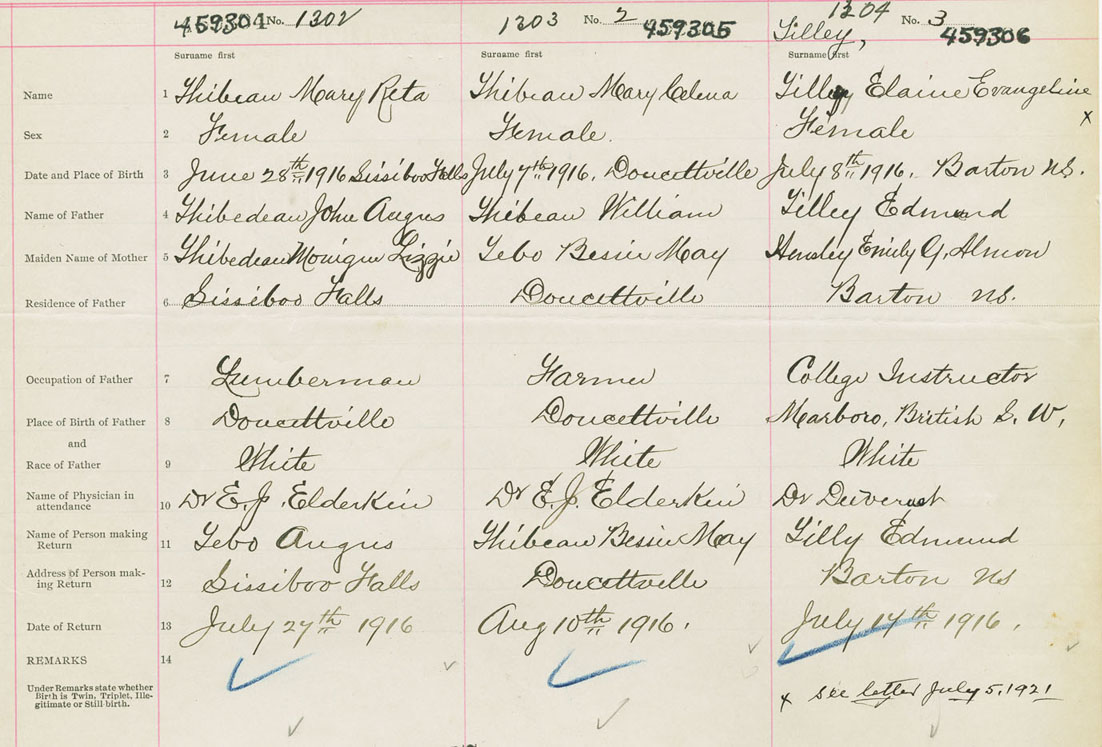 459304 No. 1302 1303 No. 2 459305 1304 No. 3 459306
Tilley,
Surname first Surname first Surname first
Name 1 Thibeau Mary Reta Thibeau Mary Celena Tilley Elaine Evangeline x
Sex 2 Female Female. Female
Date and Place of Birth 3 June 28th 1916 Sissiboo Falls July 7th 1916. Doucettville July 8th 1916. Barton N.S.
Name of Father 4 Thibedeau John Angus Thibeau William Tilley Edmund
Maiden Name of Mother 5 Thibedeau Monique Lizzie Tebo Bessie May Hensley Emily G. Almon
Residence of Father 6 Sissiboo Falls Doucettville Barton N.S.
Occupation of Father 7 Lumberman Farmer College Instructor
Place of Birth of Father 8 Doucettville Doucettville Marboro, British S. W,
and
Race of Father 9 White White White
Name of Physician in
attendance 10 Dr E. J. Elderkin Dr E. J. Elderkin Dr
Name of Person making
Return 11 Tebo Angus Thibeau Bessie May Tilly Edmund
Address of Person mak-
ing Return 12 Sissiboo Falls Doucettville Barton NS
Date of Return 13 July 27th 1916 Aug 10th 1916. July 14th 1916.
REMARKS 14
Under Remarks state whether
Birth is Twin, Triplet, Ille-
gitimate or Still-birth.
x See letter July 5, 1921